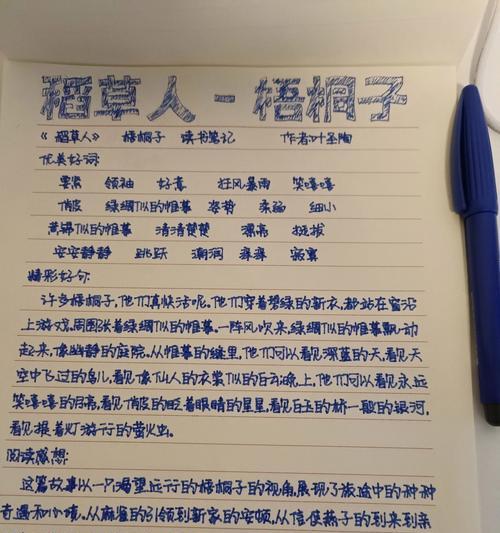 稻草人-梧桐子
《稻草人》 梧桐子 读书笔记 作者:叶圣陶
优美好词:
要紧 领袖 好意 狂风暴雨 笑嘻嘻
俏皮 绿绸似的帷幕 姿势 柔弱 细小
黄锦似的帷幕 清清楚楚 漂亮 挺拔
安安静静 跳跃 潮润 寂寞
精彩好句:
许多梧桐子,他们真快活呢。他们穿着碧绿的新衣,都站在窗沿
上游戏。周围张着绿绸似的帷幕。一阵风吹来,绿绸似的帷幕飘动
起来,像幽静的庭院。从帷幕的缝里,他们可以看见深蓝的天,看见天
空中飞过的鸟儿,看见像仙人的衣裳似的白云;晚上,他们可以看见永远
笑嘻嘻的月亮,看见俏皮的眨着眼睛的星星,看见白玉的桥一般的银河,
看见提着灯游行的萤火虫。
阅读感想:
这篇故事以一个渴望远行的梧桐子的视角,展现了旅途中的种种
奇遇和心境。从麻雀的引领到新家的安顿,从信使燕子的到来到亲